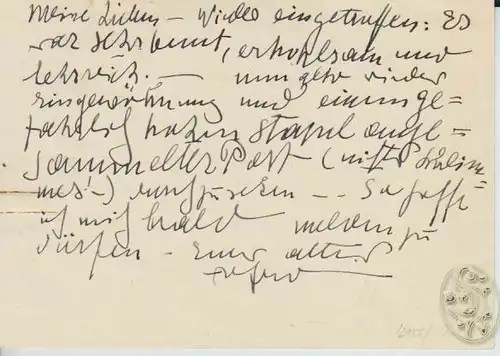 Meine Lieben – wieder eingetroffen: Es
war sehr bunt, erholsam und
lehrreich. – nun geht's wieder
Eingewöhnung und einen ge=
fährlich hohen Stapel ange=
sammelter Post (nichts Schlim=
mes! –) durchzusehen – – So hoffe
ich mich bald melden zu
dürfen – Euer alter